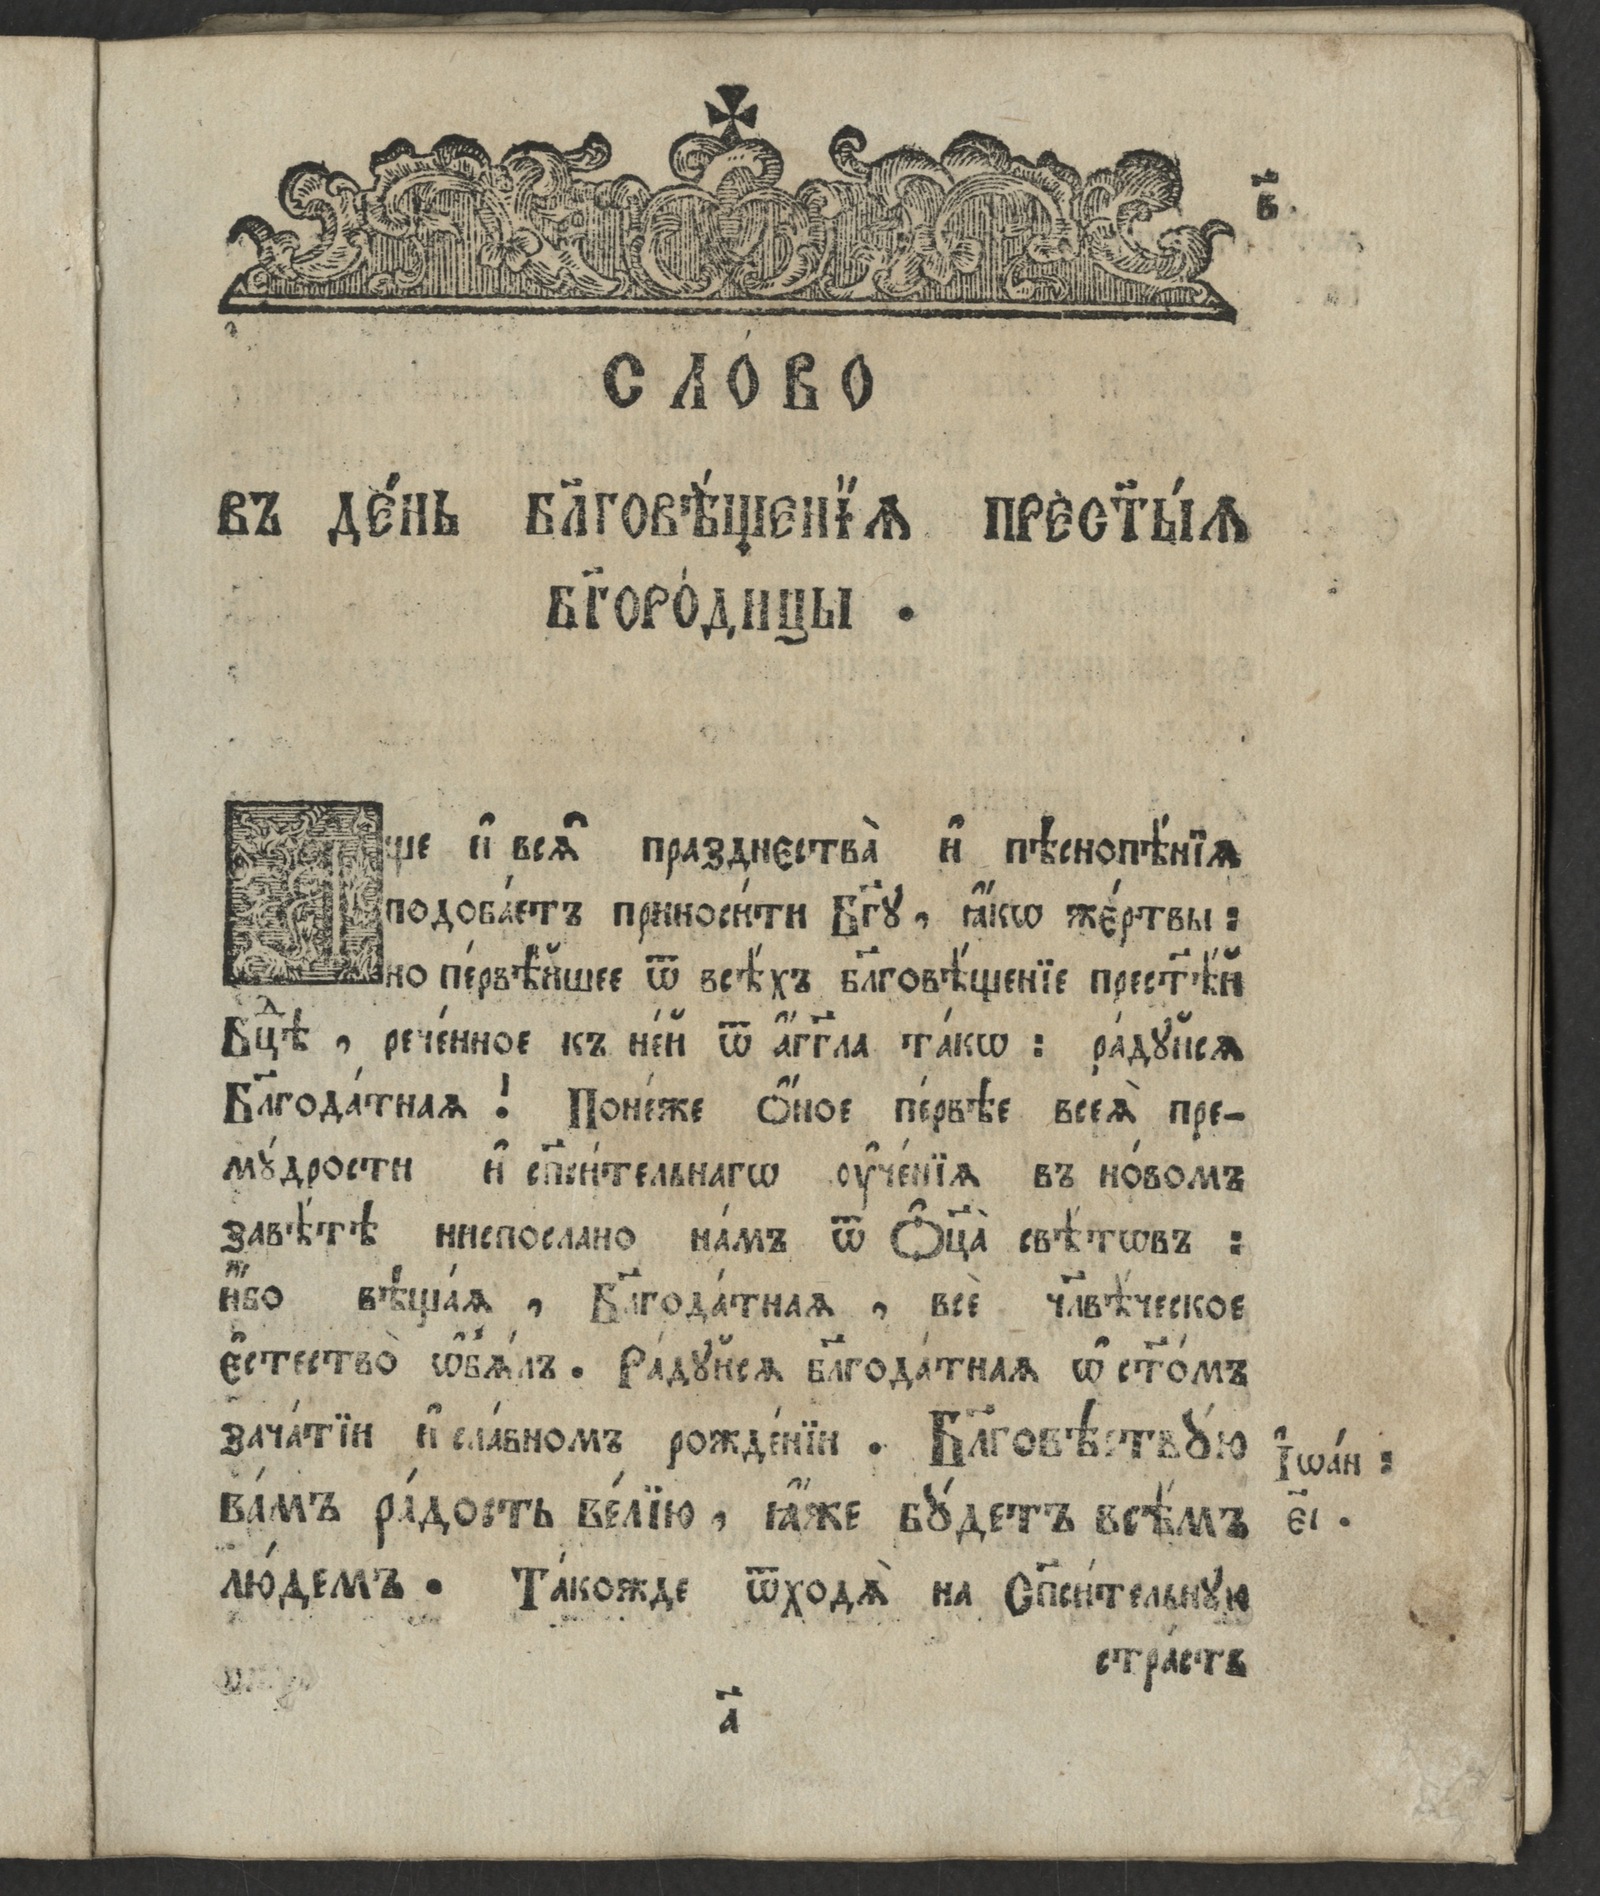 в҃.
СЛО́ВО
ВЪ ДЕ́НЬ БЛ҃ГОВѢ́ЩЕНЇѦ ПРЀСТ҃Ы́Ѧ
БГ҃ОРО́ДИЦЫ .
Аще и҆ всѧ̑ празднєства̀ и҆ пѣснопѣ́нїѧ
подоба́етъ приноси́ти Бг҃ꙋ , ꙗ҆́кѡ же́ртвы :
но пе́рвѣйшее ѿ всѣ́хъ бл҃говѣ́щенїе прест҃ѣ́й
Бцⷣѣ , рече́нное къ не́й ѿ а҆́гг҃ла та́кѡ : ра́дꙋйсѧ
Бл҃года́тнаѧ ! Поне́же ѻ҆́ное пе́рвѣе всеѧ̀ пре-
мꙋ́дрости и҆ сп҃си́тельнагѡ оу҆че́нїѧ въ но́вомъ
завѣ́тѣ ниспослано на́мъ ѿ Ѻ҆ц҃а̀ свѣ́тѡвъ :
и҆́бо вѣща́ѧ , Бл҃года́тнаѧ , всѐ чл҃вѣ́ческое
є҆стество̀ ѡ҆бѧ́лъ . Ра́дꙋйсѧ бл҃года́тнаѧ ѡ҆ ст҃о́мъ
зача́тїи и҆ сла́вномъ рожде́нїи . Бл҃говѣствꙋ́ю
ва́мъ ра́дость ве́лїю , ꙗ҆́же бꙋ́детъ всѣ́мъ
лю́демъ . Та́кожде ѿходѧ̀ на Сп҃си́тельнꙋю
І҆ѡа́н :
є҃і .
стра́сть
а҃